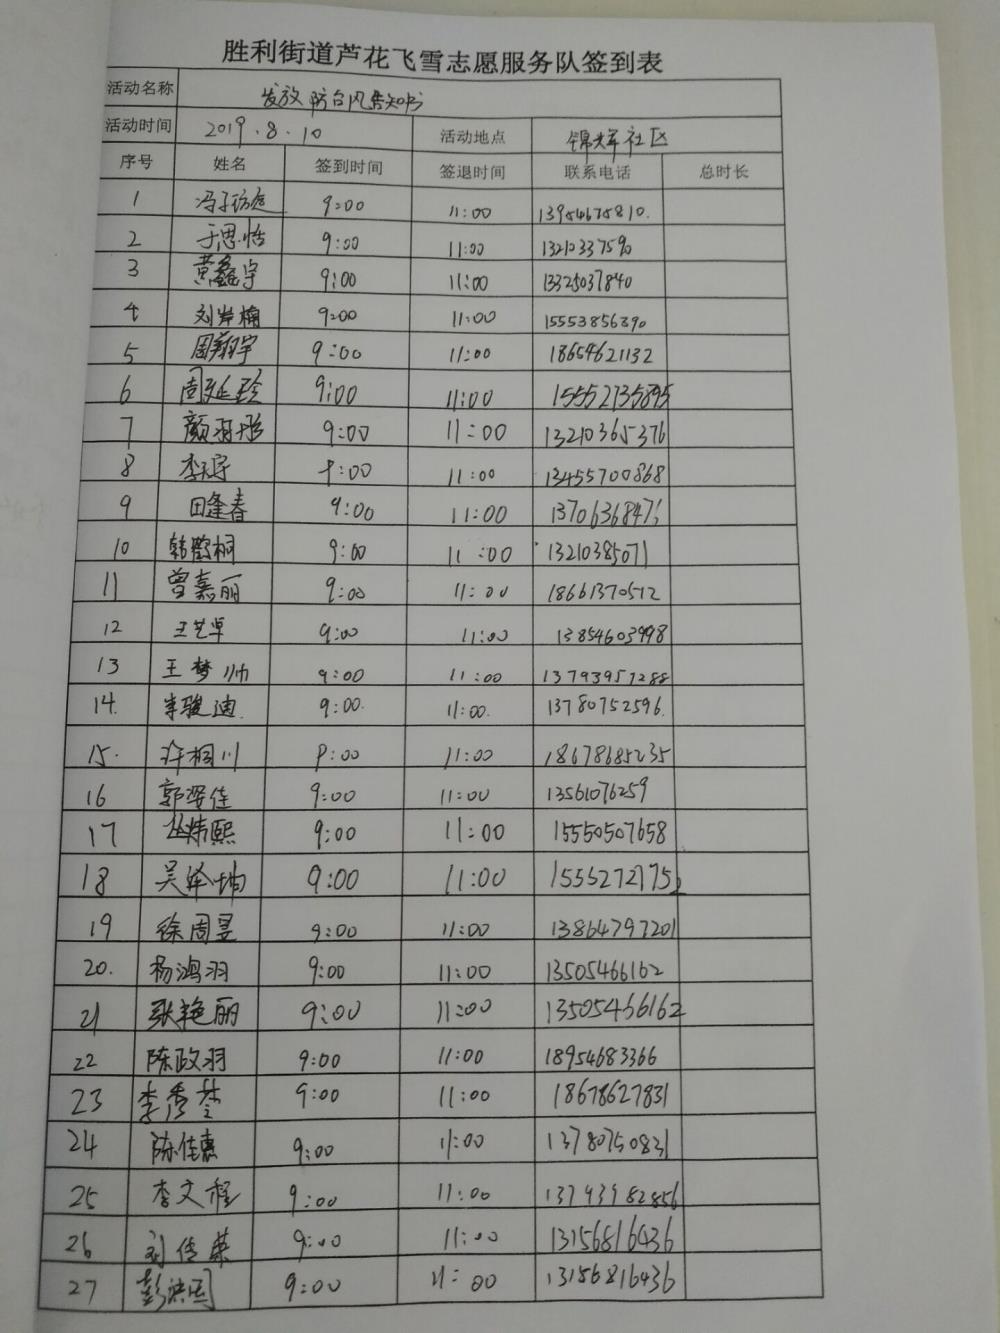 胜利街道芦花飞雪志愿服务队签到表
活动名称 发放防台风告知书
活动时间 2019.8.10 活动地点 锦辉社区
序号 姓名 签到时间 签退时间 联系电话 总时长
1 冯子 9:00 11:00 13954675810.
2 于思恬 9:00 11:00 1321033759
3 黄鑫宇 9:00 11:00 13325037840
4 刘岸楠 9:00 11:00 15553856390
5 周翔宇 9:00 11:00 18654621132
6 周延珍 9:00 11:00 15552735895
7 颜羽彤 9:00 11:00 13210365376
8 李天宇 9:00 11:00 13455700868
9 田逢春 9:00 11:00 13706368476
10 韩馨桐 9:00 11:00 13210385071
11 曾嘉丽 9:00 11:00 18661370512
12 王艺卓 9:00 11:00 13854603998
13 王梦帅 9:00 11:00 13793957288
14. 李骏迪 9:00. 11:00. 13780752596.
15. 许桐川 9:00 11:00 18678685235
16 郭姿佳 9:00 11:00 13561076259
17 丛炜熙 9:00 11:00 15550507658
18 吴泽坤 9:00 11:00 15552721752
19 徐周昱 9:00 11:00 13864797201
20. 杨鸿羽 9:00 11:00 13505466162
21 张艳丽 9:00 11:00 13505466162
22 陈政羽 9:00 11:00 18954683366
23 李秀琴 9:00 11:00 18678627831
24 陈佳惠 9:00 11:00 13780750831
25 李文程 9:00 11:00 13793982856
26 刘传荣 9:00 11:00 13156816436
27 彭洪国 9:00 11:00 13156816436